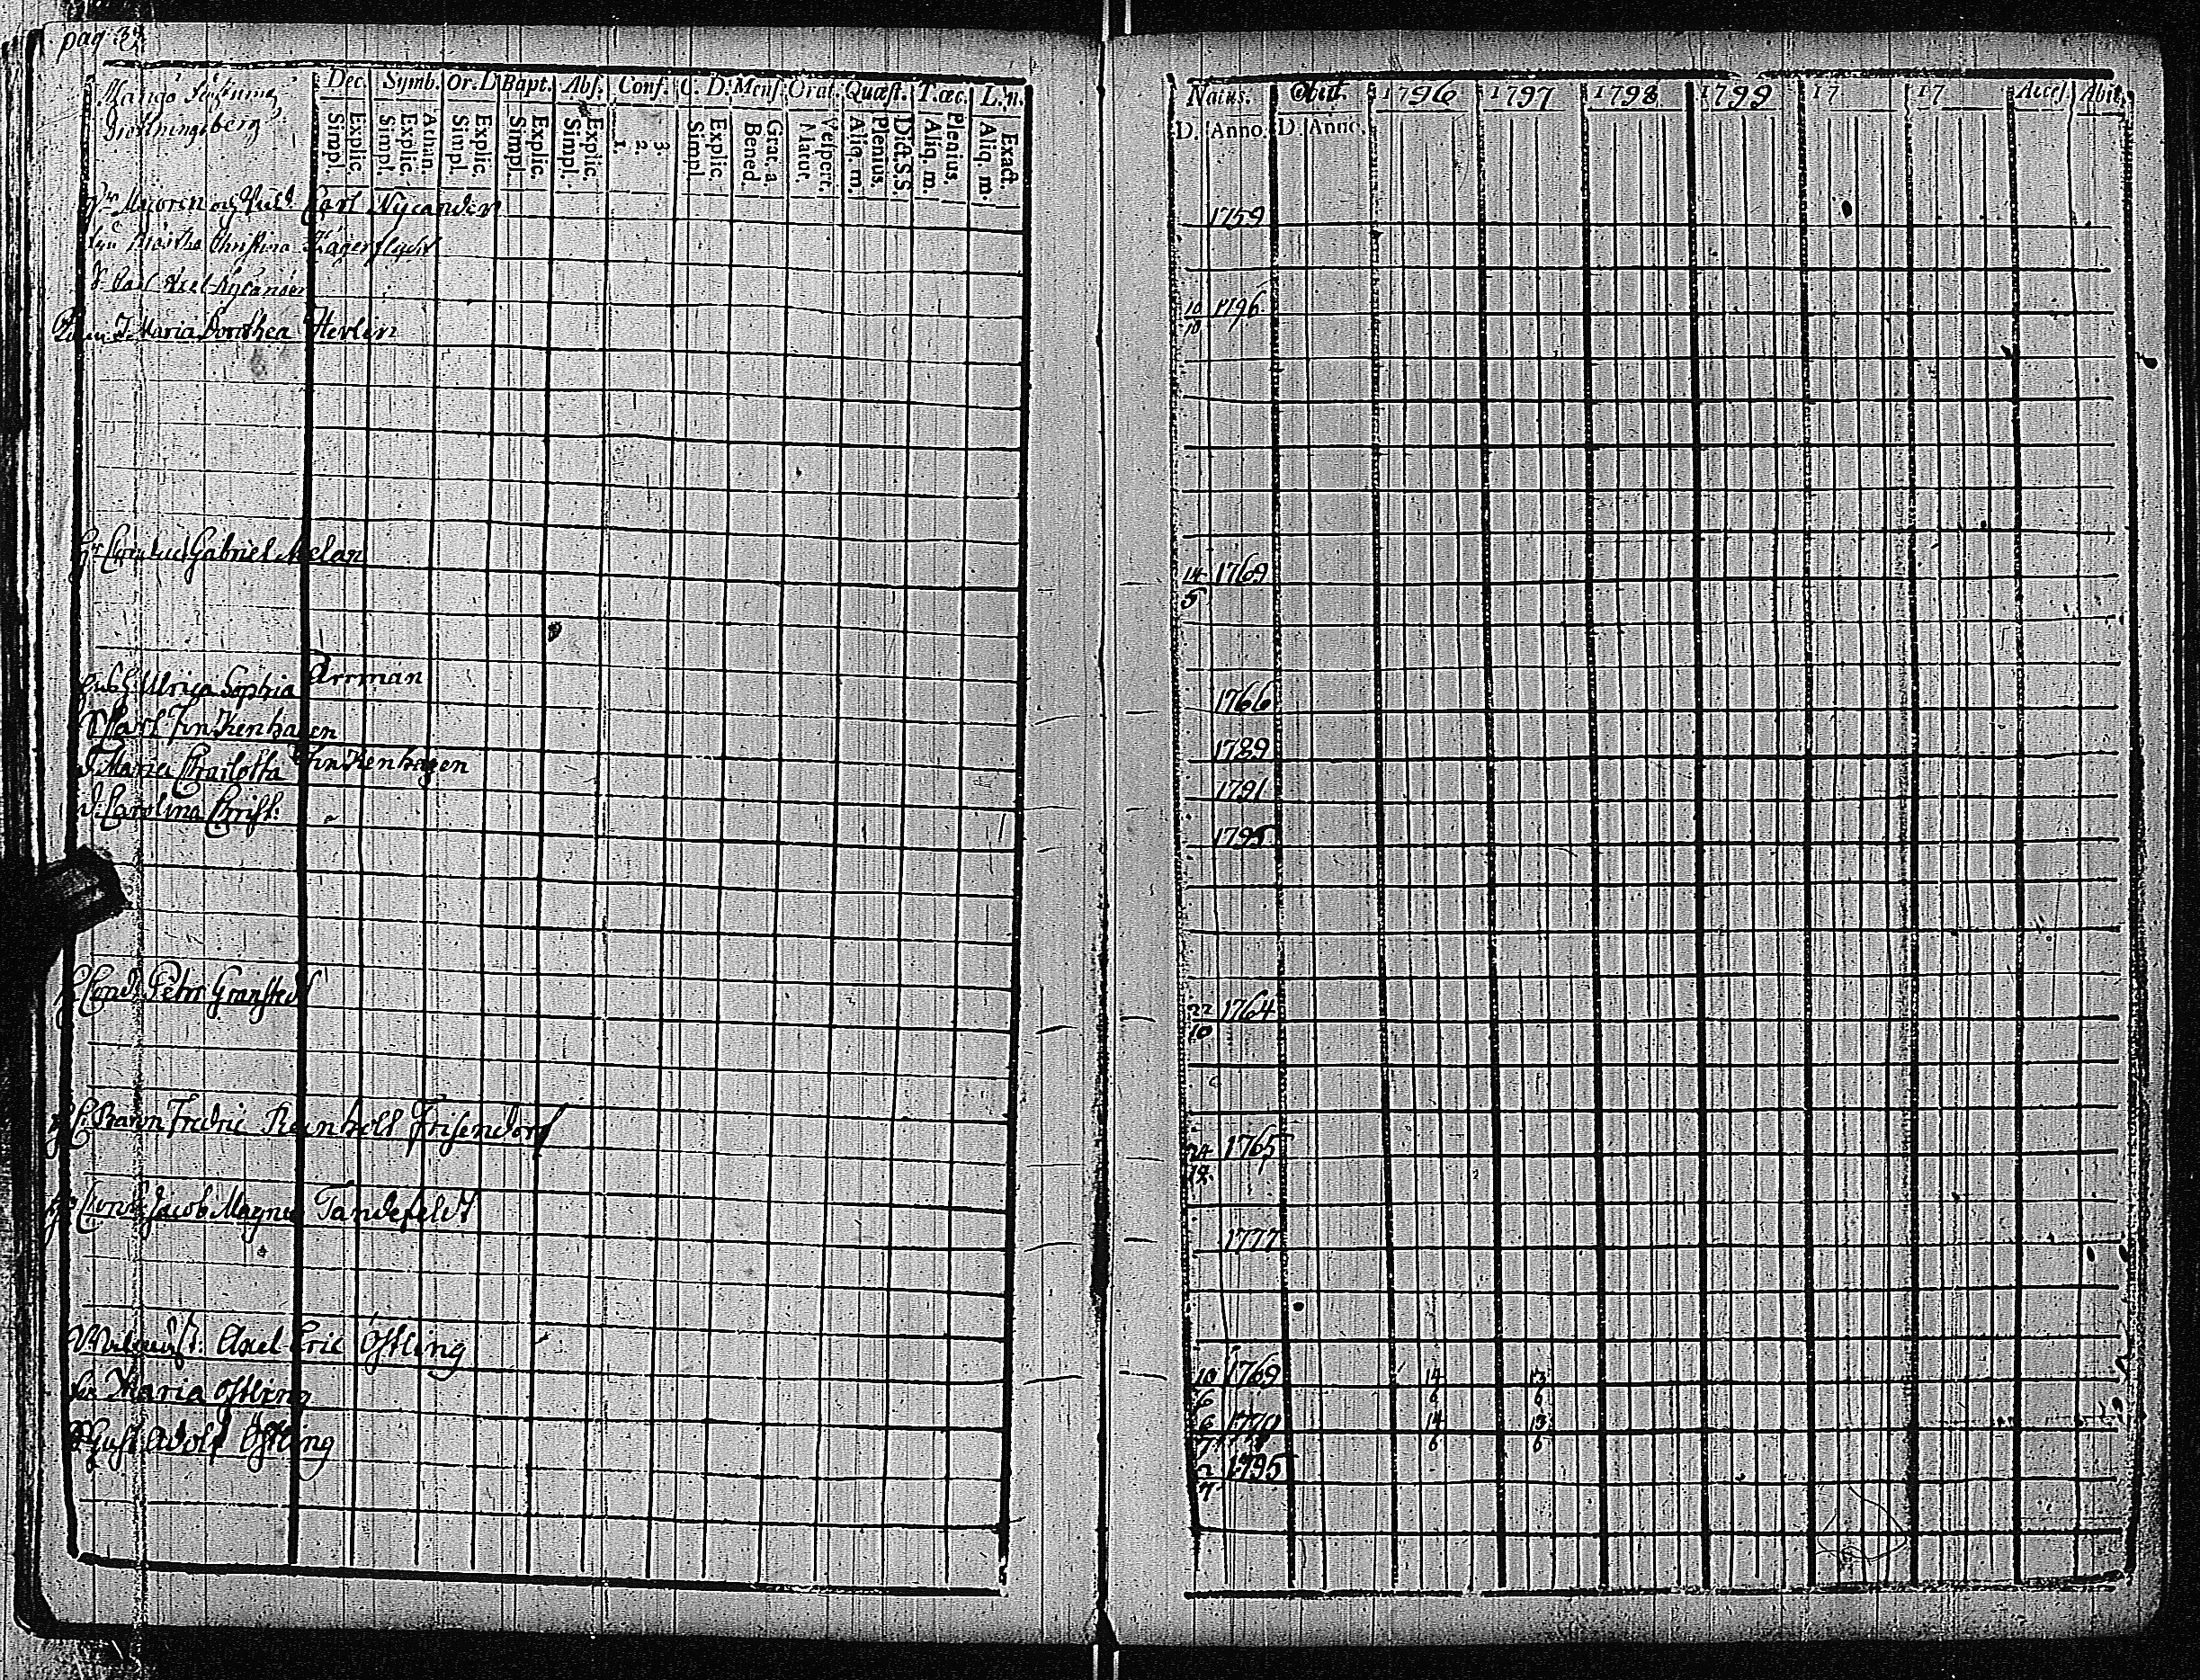 pag: 3
Drottningsberg
Dec. Symb. Or. D Bapt. Abs. Conf. C. D. Mens. Orat. Quæst. T. œc. L. n.
Simpl. Explic. Simpl. Explic. Athan. Simpl. Explic. Simpl. Explic. Simpl. Explic. 1. 2. 3. Simpl. Explic. Bened. Grat. a. Matut. Vespert. Aliq. m. Plenius. Dſa. S. S Aliq. m. Plenius. Aliq. m. Exact.
Natus. Obiit. 1796 1797 1798 1799 17 17 Acces. Abit.
D. Anno. D. Anno.
Hr Majoren och Carl Nycander 1759
Christina Lagerflycht
S. Carl Axel Nycander 10/10 1796
Maria Dorothea Herlin
Hr Gabriel Melan 14/5 1769
Ulrica Sophia Arrman 1766
S Karl Finkenhagen 1789
D. Maria Charlotta Finkenhagen 1791
D. Carolina Christ: 1795
Cond. Petr Granstedt 22/10 1764
Baron Fredric Reinhold Frisendorf 24/12 1765
Jacob Magnus Tandefeldt 1777
Axel Eric Östling 10/6 1769 14/6 13/6
hu Maria Östling 6/7 1770 14/6 13/6
S Gust Adolf Östling 2/7 1795